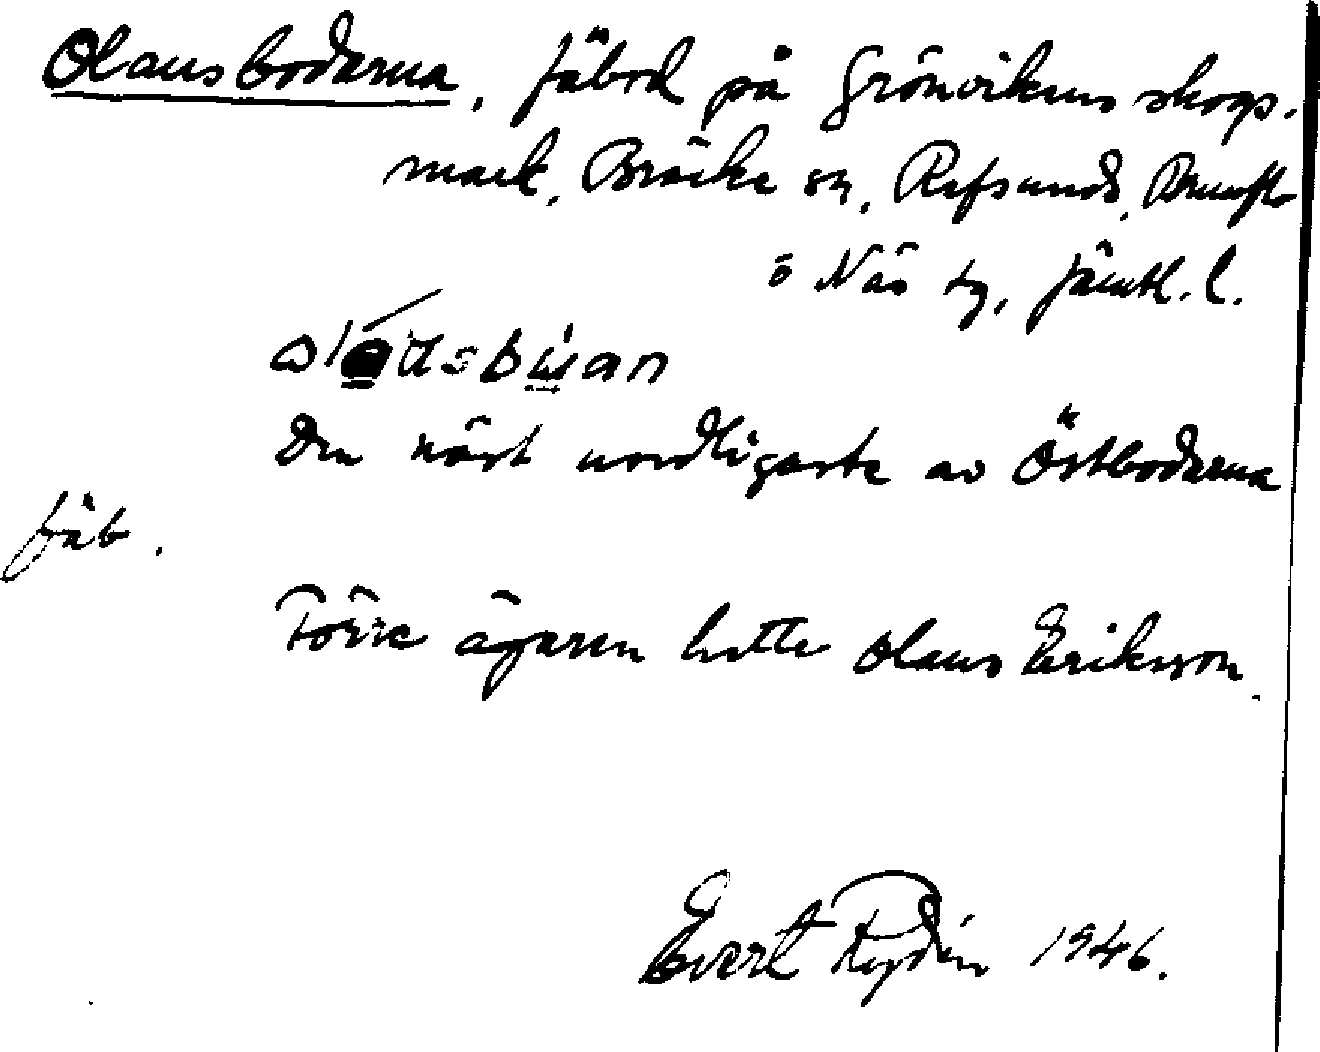 Olausbodarna, fäbod på Grönvikens skogs-
mark, Bräcke sn, Refsunds, Brunflo
o Näs tg, Jämtl. l.
Den näst nordligaste av Östbodarna
fäb.
Förre ägaren hette Olaus Eriksson.
Evert Rydén 1946.